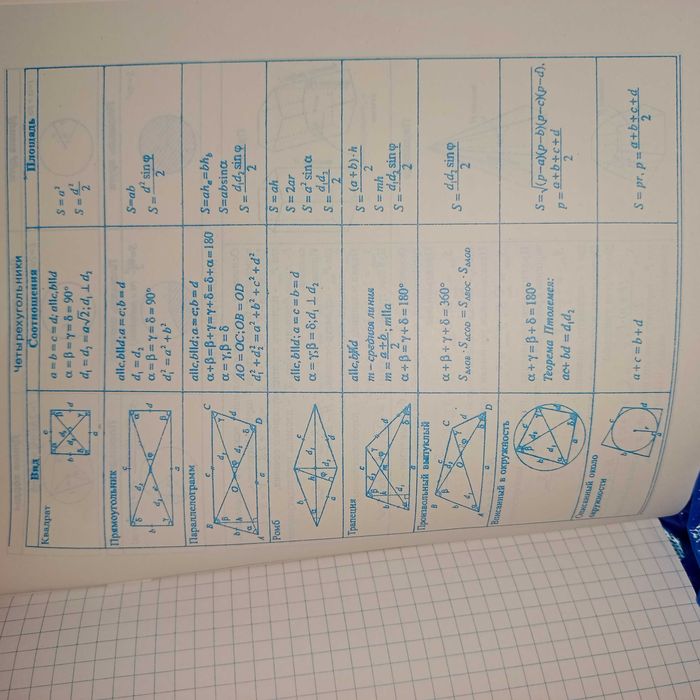 Четырехугольники
Вид Соотношения Площадь
Квадрат
a = b = c = d; a∥c, b∥d
α = β = γ = δ = 90°
d₁ = d₂ = a√2; d₁ ⊥ d₂
S = a²
S = d²/2
Прямоугольник
a∥c, b∥d; a = c; b = d
d₁ = d₂
α = β = γ = δ = 90°
d₁² = a² + b²
S=ab
S = d² sinφ/2
Параллелограмм
a∥c, b∥d; a = c; b = d
α+β=β+γ=γ+δ=δ+α=180
α = γ; β = δ
AO = OC; OB = OD
d₁² + d₂² = a² + b² + c² + d²
S=ahₐ = bh_b
S=absinα
S = d₁d₂ sinφ/2
Ромб
a∥c, b∥d; a = c = b = d
α = γ; β = δ; d₁ ⊥ d₂
S = ah
S = 2ar
S = a² sinα
S = d₁d₂/2
Трапеция
a∥c, b∦d
m – средняя линия
m = (a + b)/2; m∥a
α + β = γ + δ = 180°
S = (a + b) · h/2
S = mh
S = d₁d₂ sinφ/2
Произвольный выпуклый
α + β + γ + δ = 360°
S = d₁d₂ sinφ/2
Вписанный в окружность
α + γ = β + δ = 180°
Теорема Птолемея:
ac+ bd = d₁d₂
S=√(p−a)(p−b)(p−c)(p−d),
p = a + b + c + d/2
Описанный около
окружности
a + c = b + d
S = pr, p = a + b + c + d/2